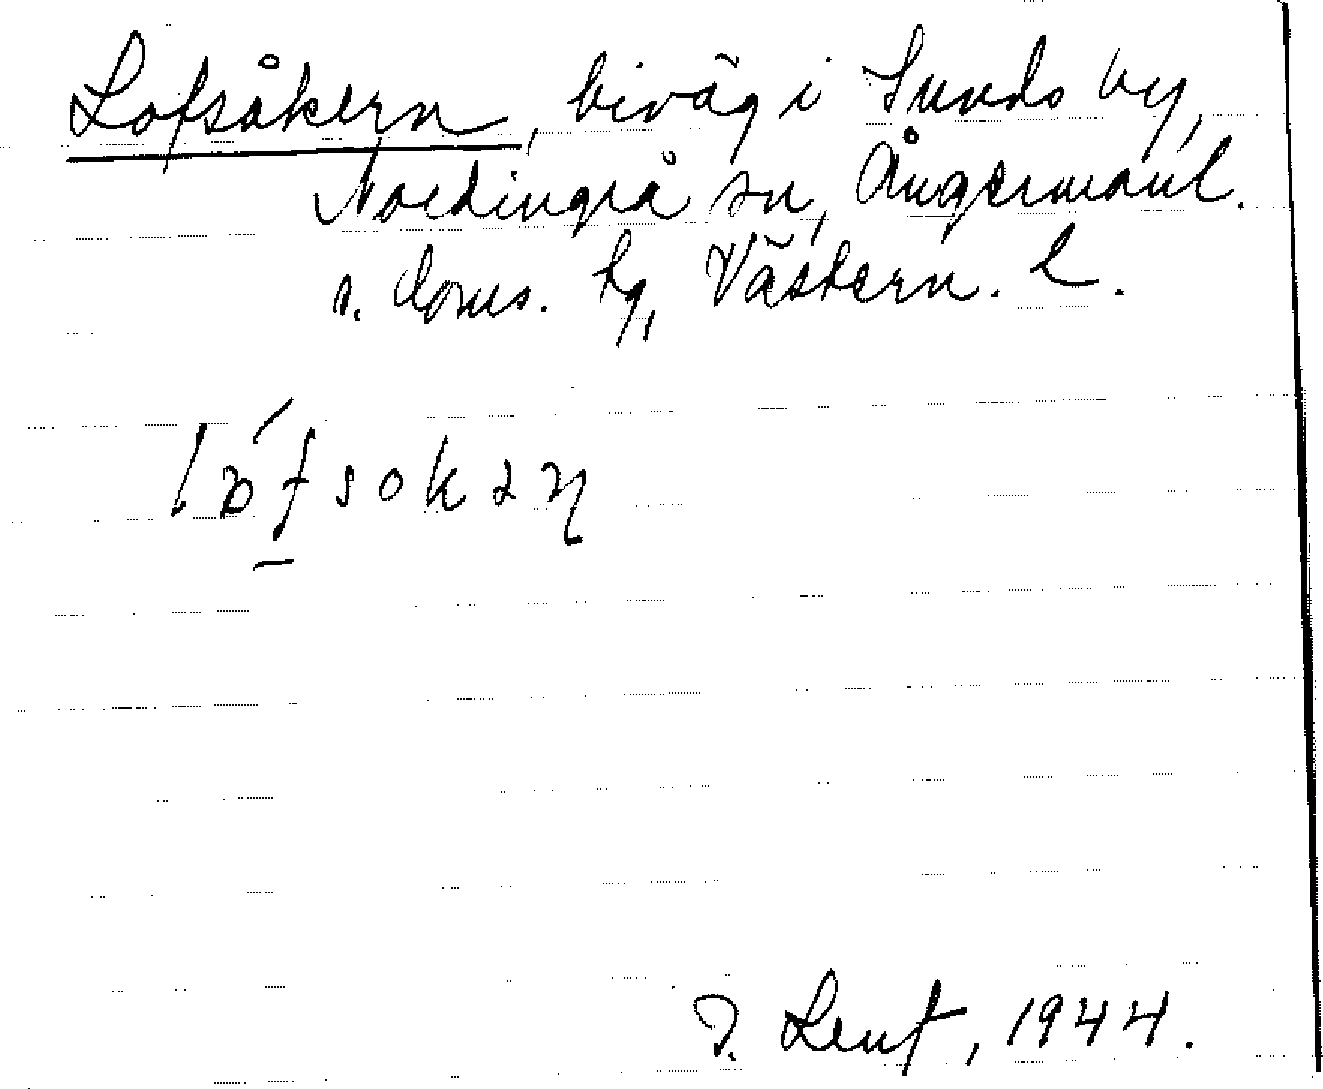 Lofsåkern, biväg i Sunds by,
Nordingrå sn, Ångermanl.
s. doms. tg, Västern. l.
lófsokən
Lenf, 1944.